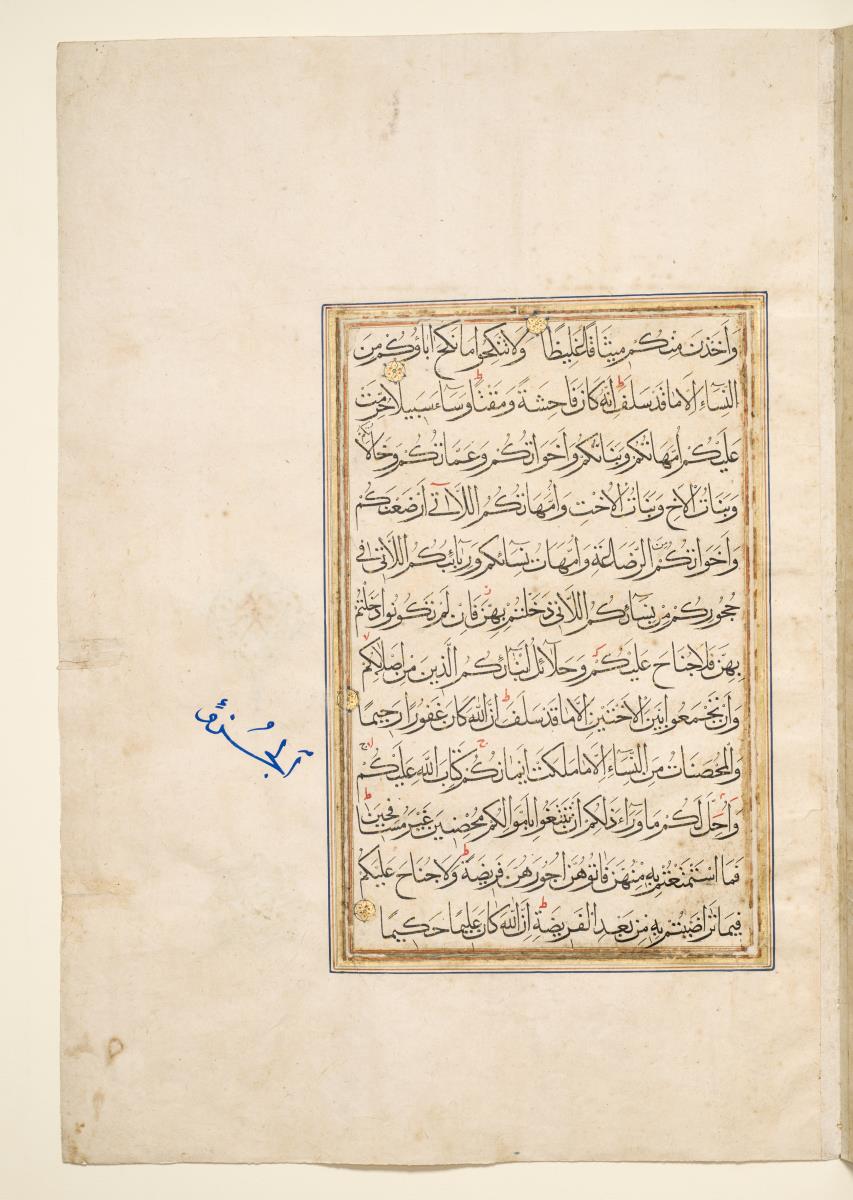 وَأَخَذْنَ مِنْكُمْ مِيثَاقًا غَلِيظًا وَلَا تَنْكِحُوا مَا نَكَحَ آبَاؤُكُمْ مِنَ
النِّسَاءِ إِلَّا مَا قَدْ سَلَفَ إِنَّهُ كَانَ فَاحِشَةً وَمَقْتًا وَسَاءَ سَبِيلًا حُرِّمَتْ
عَلَيْكُمْ أُمَّهَاتُكُمْ وَبَنَاتُكُمْ وَأَخَوَاتُكُمْ وَعَمَّاتُكُمْ وَخَالَاتُكُمْ
وَبَنَاتُ الْأَخِ وَبَنَاتُ الْأُخْتِ وَأُمَّهَاتُكُمُ اللَّاتِي أَرْضَعْنَكُمْ
وَأَخَوَاتُكُمْ مِنَ الرَّضَاعَةِ وَأُمَّهَاتُ نِسَائِكُمْ وَرَبَائِبُكُمُ اللَّاتِي فِي
حُجُورِكُمْ مِنْ نِسَائِكُمُ اللَّاتِي دَخَلْتُمْ بِهِنَّ فَإِنْ لَمْ تَكُونُوا دَخَلْتُمْ
بِهِنَّ فَلَا جُنَاحَ عَلَيْكُمْ وَحَلَائِلُ أَبْنَائِكُمُ الَّذِينَ مِنْ أَصْلَابِكُمْ
وَأَنْ تَجْمَعُوا بَيْنَ الْأُخْتَيْنِ إِلَّا مَا قَدْ سَلَفَ إِنَّ اللَّهَ كَانَ غَفُورًا رَحِيمًا
وَالْمُحْصَنَاتُ مِنَ النِّسَاءِ إِلَّا مَا مَلَكَتْ أَيْمَانُكُمْ كِتَابَ اللَّهِ عَلَيْكُمْ
وَأُحِلَّ لَكُمْ مَا وَرَاءَ ذَلِكُمْ أَنْ تَبْتَغُوا بِأَمْوَالِكُمْ مُحْصِنِينَ غَيْرَ مُسَافِحِينَ
فَمَا اسْتَمْتَعْتُمْ بِهِ مِنْهُنَّ فَآتُوهُنَّ أُجُورَهُنَّ فَرِيضَةً وَلَا جُنَاحَ عَلَيْكُمْ
فِيمَا تَرَاضَيْتُمْ بِهِ مِنْ بَعْدِ الْفَرِيضَةِ إِنَّ اللَّهَ كَانَ عَلِيمًا حَكِيمًا